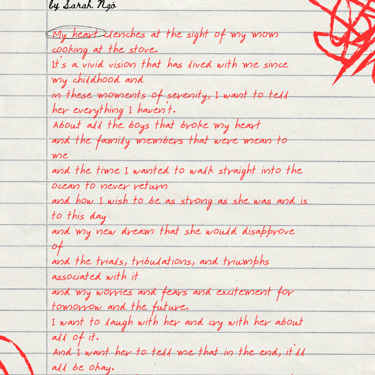 by Sarah Ngô
My heart clenches at the sight of my mom
cooking at the stove.
It's a vivid vision that has lived with me since
my childhood and
in these moments of serenity, I want to tell
her everything I haven't.
About all the boys that broke my heart
and the family members that were mean to
me
and the time I wanted to walk straight into the
ocean to never return
and how I wish to be as strong as she was and is
to this day
and my new dream that she would disapprove
of
and the trials, tribulations, and triumphs
associated with it
and my worries and fears and excitement for
tomorrow and the future.
I want to laugh with her and cry with her about
all of it.
And I want her to tell me that in the end, it'll
all be okay.